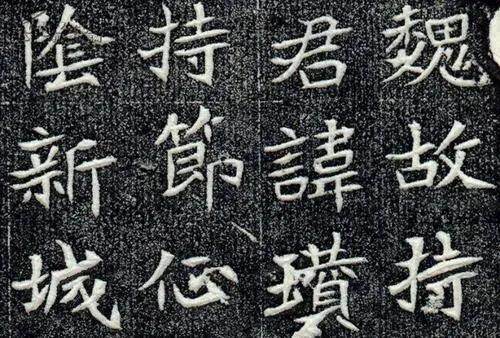 魏故持
君諱瓚
持節
陰新城